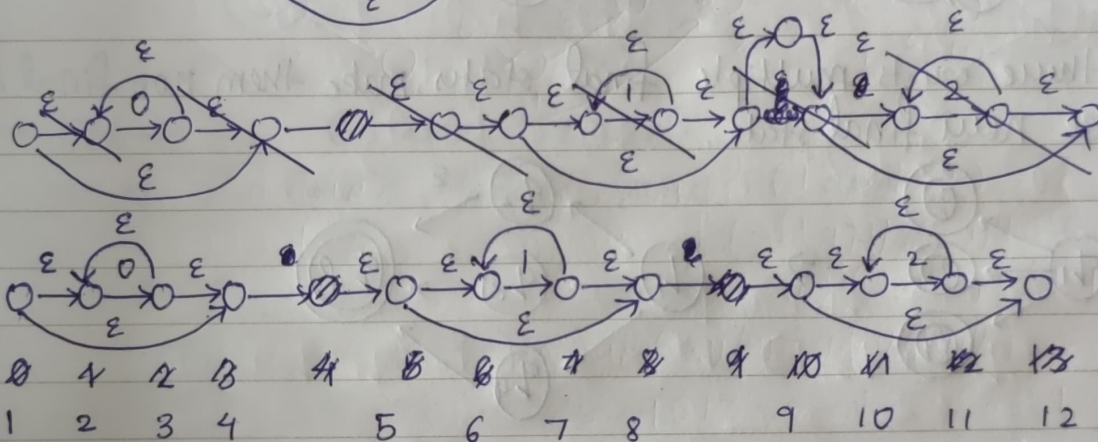 ε
ε ε ε ε ε ε
ε 0 ε ε ε 1 ε ε 2 ε
ε ε ε
ε ε
ε 0 ε ε ε 1 ε ε ε 2 ε
ε ε ε
0 1 2 3 4 5 6 7 8 9 10 11 12 13
1 2 3 4 5 6 7 8 9 10 11 12